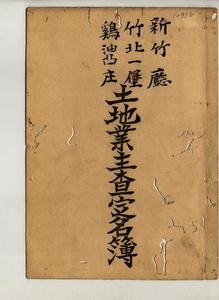 新竹廳
竹北一堡
鷄油凸庄
土地業主查定名簿